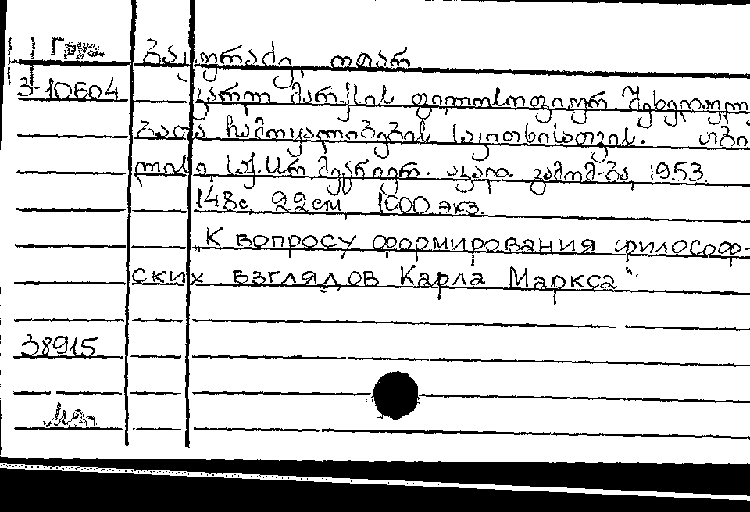 Груз. ბაკურაძე, ოთარ
3-10604 კარლ მარქსის ფილოსოფიურ შეხედულ
ბათა ჩამოყალიბების საკითხისათვის. თბი
ლისი, საქ. სსრ მეცნიერ. აკად. გამომ-ბა, 1953.
148с, 22см, 1000 экз.
"К вопросу формирования философ-
ских взглядов Карла Маркса".
38915